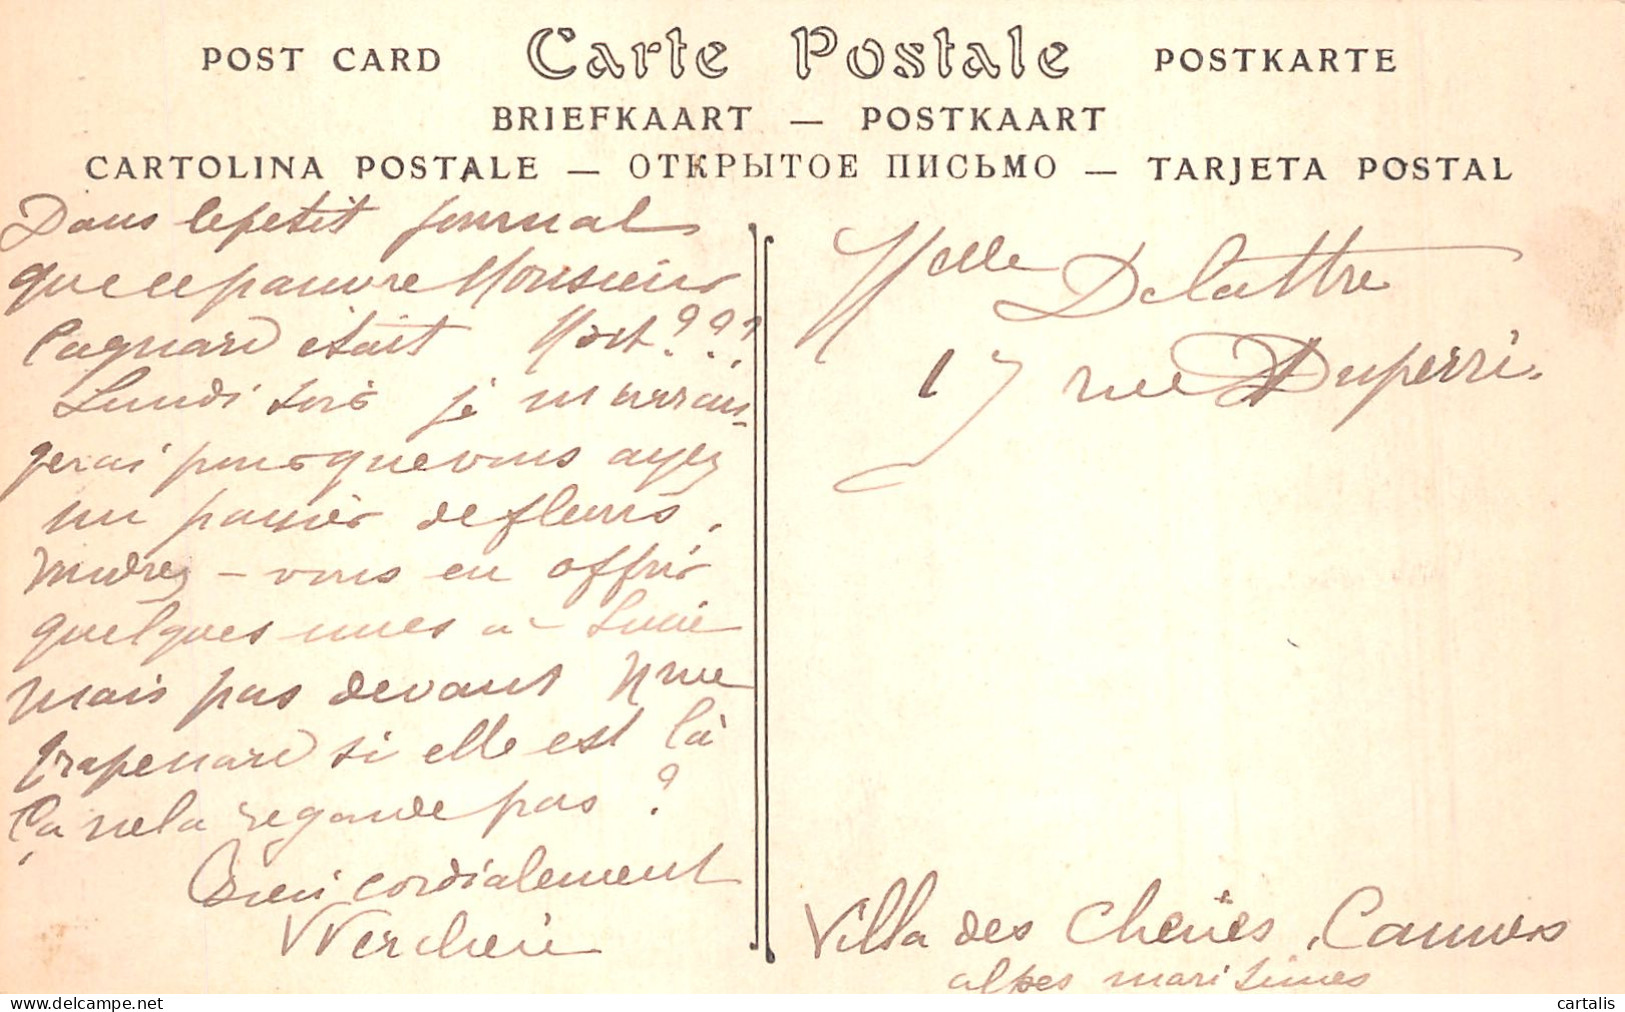 POST CARD Carte Postale POSTKARTE
BRIEFKAART — POSTKAART
CARTOLINA POSTALE — ОТКРЫТОЕ ПИСЬМО — TARJETA POSTAL
Dans le petit journal
que ce pauvre Monsieur
Cagnard était Mort???
Lundi soir je m'arran-
gerai pour que vous ayez
un panier de fleurs.
Mudrez - vous en offrir
quelques unes à - Lucie
mais pas devant Mme
Grapenard si elle est là
Ça ne la regarde pas ?
Bien cordialement
Melle Delattre
17 rue Duperré.
Villa des Chênes, Cannes
alpes maritimes
cartalis
delcampe.net